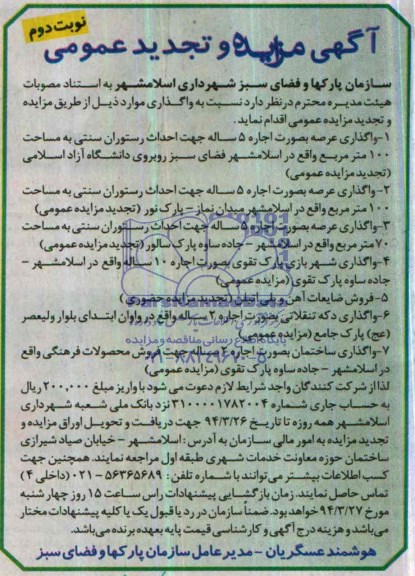 نوبت دوم
آگهی مزایده و تجدید عمومی
سازمان پارکها و فضای سبز شهرداری اسلامشهر به استناد مصوبات
هیئت مدیره محترم در نظر دارد نسبت به واگذاری موارد ذیل از طریق مزایده
و تجدید مزایده عمومی اقدام نماید.
۱-واگذاری عرصه بصورت اجاره ۵ ساله جهت احداث رستوران سنتی به مساحت
۱۰۰ متر مربع واقع در اسلامشهر فضای سبز روبروی دانشگاه آزاد اسلامی
(تجدید مزایده عمومی)
۲-واگذاری عرصه بصورت اجاره ۵ ساله جهت احداث رستوران سنتی به مساحت
۱۰۰ متر مربع واقع در اسلامشهر میدان نماز - پارک نور (تجدید مزایده عمومی)
۳-واگذاری عرصه بصورت اجاره ۵ ساله جهت احداث رستوران سنتی به مساحت
۷۰ متر مربع واقع در اسلامشهر - جاده ساوه پارک سالور (تجدید مزایده عمومی)
۴-واگذاری شهر بازی پارک تقوی بصورت اجاره ۱۰ ساله واقع در اسلامشهر -
جاده ساوه پارک تقوی (مزایده عمومی)
۵-فروش ضایعات آهن و پلی اتیلن (تجدید مزایده حضوری)
۶-واگذاری دکه تنقلاتی بصورت اجاره ۲ ساله واقع در واوان ابتدای بلوار ولیعصر
(عج) پارک جامع (مزایده عمومی)
۷-واگذاری ساختمان بصورت اجاره ساله جهت فروش محصولات فرهنگی واقع
در اسلامشهر - جاده ساوه پارک تقوی (مزایده عمومی)
لذا از شرکت کنندگان واجد شرایط لازم دعوت می شود با واریز مبلغ ۲۰۰,۰۰۰ ریال
به حساب جاری شماره ۳۱۰۰۰۰۱۷۸۲۰۰۴ نزد بانک ملی شعبه شهرداری
اسلامشهر همه روزه تا تاریخ ۹۴/۳/۲۶ جهت دریافت و تحویل اوراق مزایده و
تجدید مزایده به امور مالی سازمان به آدرس: اسلامشهر - خیابان صیاد شیرازی
ساختمان حوزه معاونت خدمات شهری طبقه اول مراجعه نمایند. همچنین جهت
کسب اطلاعات بیشتر می توانند با شماره تلفن: ۵۶۳۶۵۶۸۹-۰۲۱ (داخلی ۴)
تماس حاصل نمایند. زمان بازگشایی پیشنهادات راس ساعت ۱۵ روز چهار شنبه
مورخ ۹۴/۳/۲۷ خواهد بود. ضمناً سازمان در رد یا قبول یک یا کلیه پیشنهادات مختار
می باشد و هزینه درج آگهی و کارشناسی قیمت پایه بعهده برنده می باشد.
هوشمند عسگریان - مدیر عامل سازمان پارکها و فضای سبز